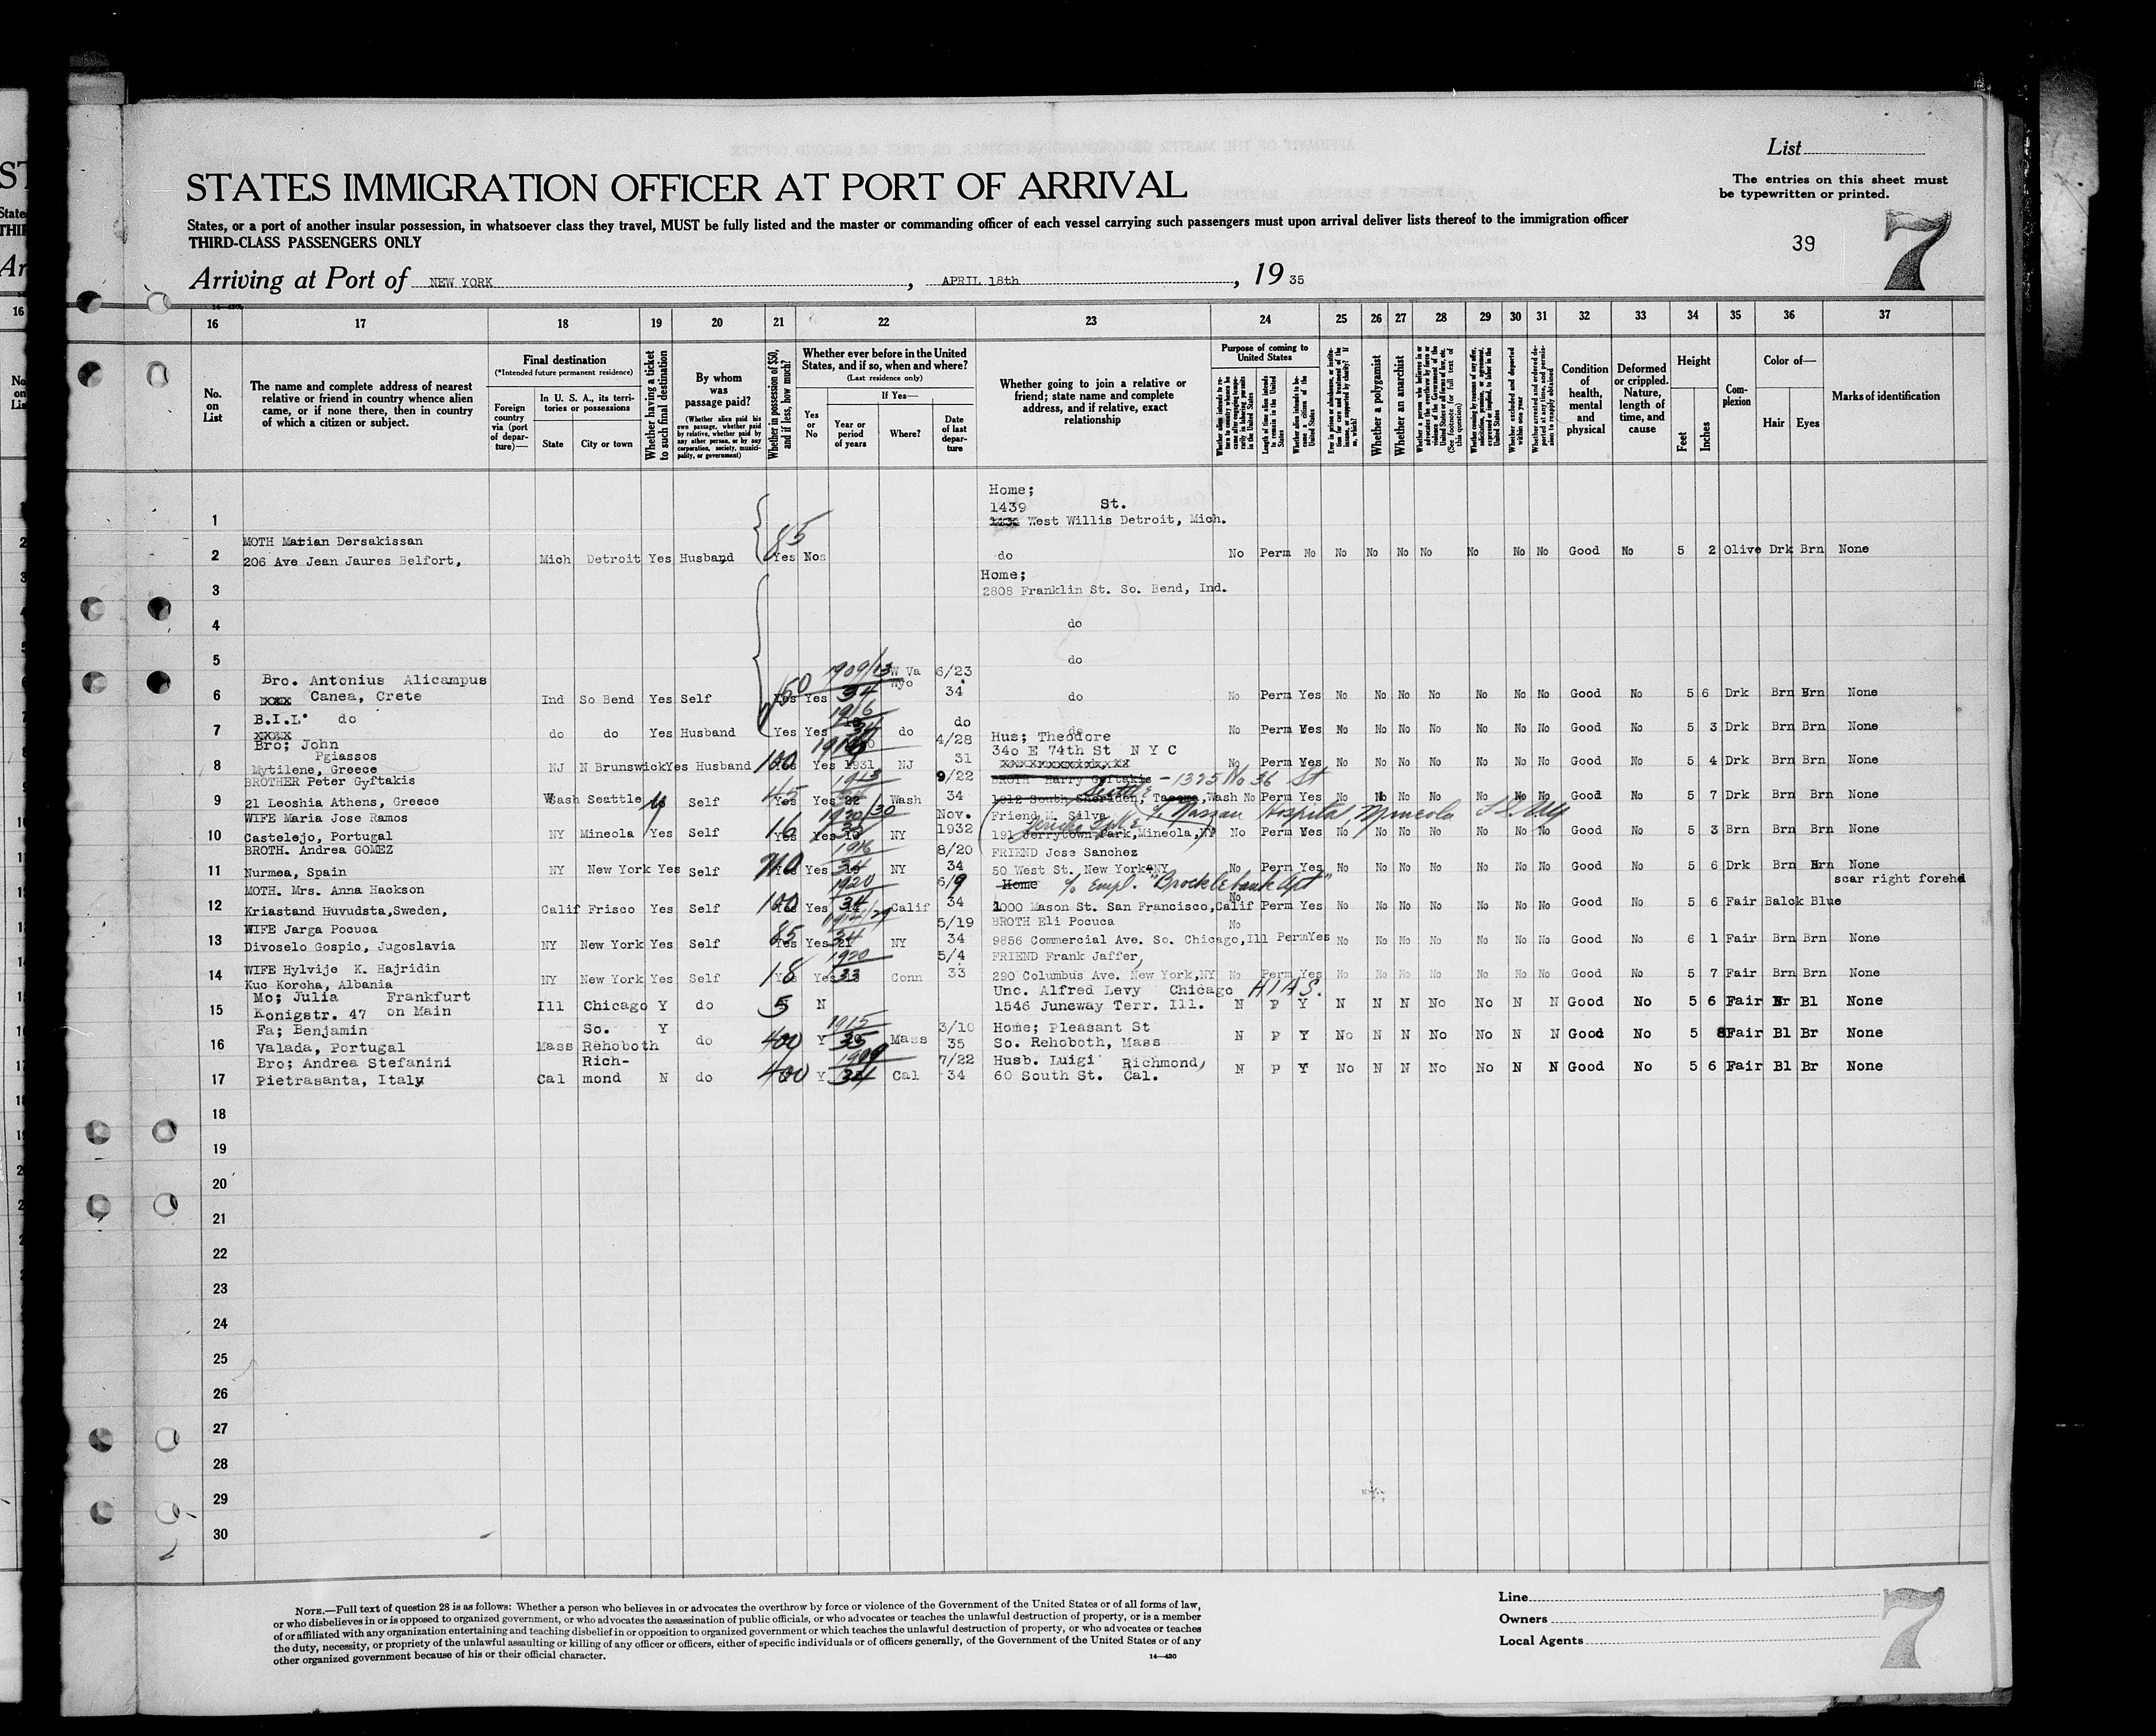 List
STATES IMMIGRATION OFFICER AT PORT OF ARRIVAL
The entries on this sheet must
be typewritten or printed.
States, or a port of another insular possession, in whatsoever class they travel, MUST be fully listed and the master or commanding officer of each vessel carrying such passengers must upon arrival deliver lists thereof to the immigration officer
THIRD-CLASS PASSENGERS ONLY
39
7
Arriving at Port of NEW YORK, APRIL 18th, 19 35
16 17 18 19 20 21 22 23 24 25 26 27 28 29 30 31 32 33 34 35 36 37
No. on List
The name and complete address of nearest relative or friend in country whence alien came, or if none there, then in country of which a citizen or subject.
Final destination
(*Intended future permanent residence)
Foreign country via (port of departure)—
In U. S. A., its territories or possessions
State
City or town
Whether having a ticket to such final destination
By whom was passage paid?
(Whether alien paid his own passage, whether paid by relative, whether paid by any other person, or by any corporation, society, municipality, or government)
Whether in possession of $50, and if less, how much?
Whether ever before in the United States, and if so, when and where?
(Last residence only)
Yes or No
If Yes—
Year or period of years
Where?
Date of last departure
Whether going to join a relative or friend; state name and complete address, and if relative, exact relationship
Purpose of coming to United States
Whether a polygamist
Whether an anarchist
Condition of health, mental and physical
Deformed or crippled. Nature, length of time, and cause
Height
Feet
Inches
Complexion
Color of—
Hair
Eyes
Marks of identification
Home;
1439 St.
1 West Willis Detroit, Mich.
MOTH Marian Dersakissan
2 206 Ave Jean Jaures Belfort, Mich Detroit Yes Husband 85 Yes No do No Perm No No No No No No No No Good No 5 2 Olive Drk Brn None
Home;
3 2808 Franklin St. So. Bend, Ind.
4 do
5 do
Bro. Antonius Alicampus 1909/13 W Va 6/23
6 Canea, Crete Ind So Bend Yes Self 150 Yes Yes 34 Wyo 34 do No Perm Yes No No No No No No No Good No 5 6 Drk Brn Brn None
B.I.L. do 1916 do
7 do do Yes Husband Yes Yes do do No Perm Yes No No No No No No No Good No 5 3 Drk Brn Brn None
Bro; John 4/28 Hus; Theodore
Pgiassos 340 E 74th St N Y C
8 Mytilene, Greece NJ N Brunswick Yes Husband 100 Yes Yes 1931 NJ 31 No Perm Yes No No No No No No No Good No 5 4 Drk Brn Brn None
BROTHER Peter Gyftakis 1913 9/22 BROTH Harry Gyftakis - 1325 No 36 St
9 21 Leoshia Athens, Greece Wash Seattle Self 45 Yes Yes 22 Wash 34 1912 South Sheriden, Tacoma, Wash Seattle No Perm Yes No No No No No No No Good No 5 7 Drk Brn Brn None
WIFE Maria Jose Ramos 1920/30 Nov. Friend M. Silva c/o Nassau Hospital, Mineola
10 Castelejo, Portugal NY Mineola Yes Self 16 Yes Yes NY 1932 191 Jerrytown Park, Mineola, NY No Perm Yes No No No No No No No Good No 5 3 Brn Brn Brn None
BROTH. Andrea GOMEZ 1916 8/20 FRIEND Jose Sanchez
11 Nurmea, Spain NY New York Yes Self Yes Yes 34 NY 34 50 West St. New York NY No Perm Yes No No No No No No No Good No 5 6 Drk Brn Brn None
MOTH. Mrs. Anna Hackson 1920 6/9 Home c/o Empl. "Brocklebank Apt" scar right forehd
12 Kriastand Huvudsta,Sweden, Calif Frisco Yes Self 100 Yes Yes 34 Calif 34 1000 Mason St. San Francisco, Calif No Perm Yes No No No No No No No Good No 5 6 Fair Balck Blue
WIFE Jarga Pocuca 5/19 BROTH Eli Pocuca No
13 Divoselo Gospic, Jugoslavia NY New York Yes Self 85 Yes Yes 34 NY 34 9856 Commercial Ave. So. Chicago, Ill Perm Yes No No No No No No No Good No 6 1 Fair Brn Brn None
WIFE Hylvije K. Hajridin 1920 5/4 FRIEND Frank Jaffer,
14 Kuc Korcha, Albania NY New York Yes Self 18 Yes Yes 33 Conn 33 290 Columbus Ave. New York, NY No Perm Yes No No No No No No No Good No 5 7 Fair Brn Brn None
Mo; Julia Frankfurt Unc. Alfred Levy Chicago HIAS.
15 Konigstr. 47 on Main Ill Chicago Y do 5 N 1546 Juneway Terr. Ill. N P Y N N N No No N N Good No 5 6 Fair Br Bl None
Fa; Benjamin So. Y 1915 3/10 Home; Pleasant St
16 Valada, Portugal Mass Rehoboth do 400 Y 35 Mass 35 So. Rehoboth, Mass N P Y No N N No No N N Good No 5 8 Fair Bl Br None
Bro; Andrea Stefanini Rich- 1909 7/22 Husb. Luigi Richmond,
17 Pietrasanta, Italy Cal mond N do 400 Y 34 Cal 34 60 South St. Cal. N P Y No N N No No N N Good No 5 6 Fair Bl Br None
18
19
20
21
22
23
24
25
26
27
28
29
30
NOTE.—Full text of question 28 is as follows: Whether a person who believes in or advocates the overthrow by force or violence of the Government of the United States or of all forms of law,
or who disbelieves in or is opposed to organized government, or who advocates the assassination of public officials, or who advocates or teaches the unlawful destruction of property, or is a member
of or affiliated with any organization entertaining and teaching disbelief in or opposition to organized government or which teaches the unlawful destruction of property, or who advocates or teaches
the duty, necessity, or propriety of the unlawful assaulting or killing of any officer or officers, either of specific individuals or of officers generally, of the Government of the United States or of any
other organized government because of his or their official character.
14—430
Line
Owners
Local Agents
7